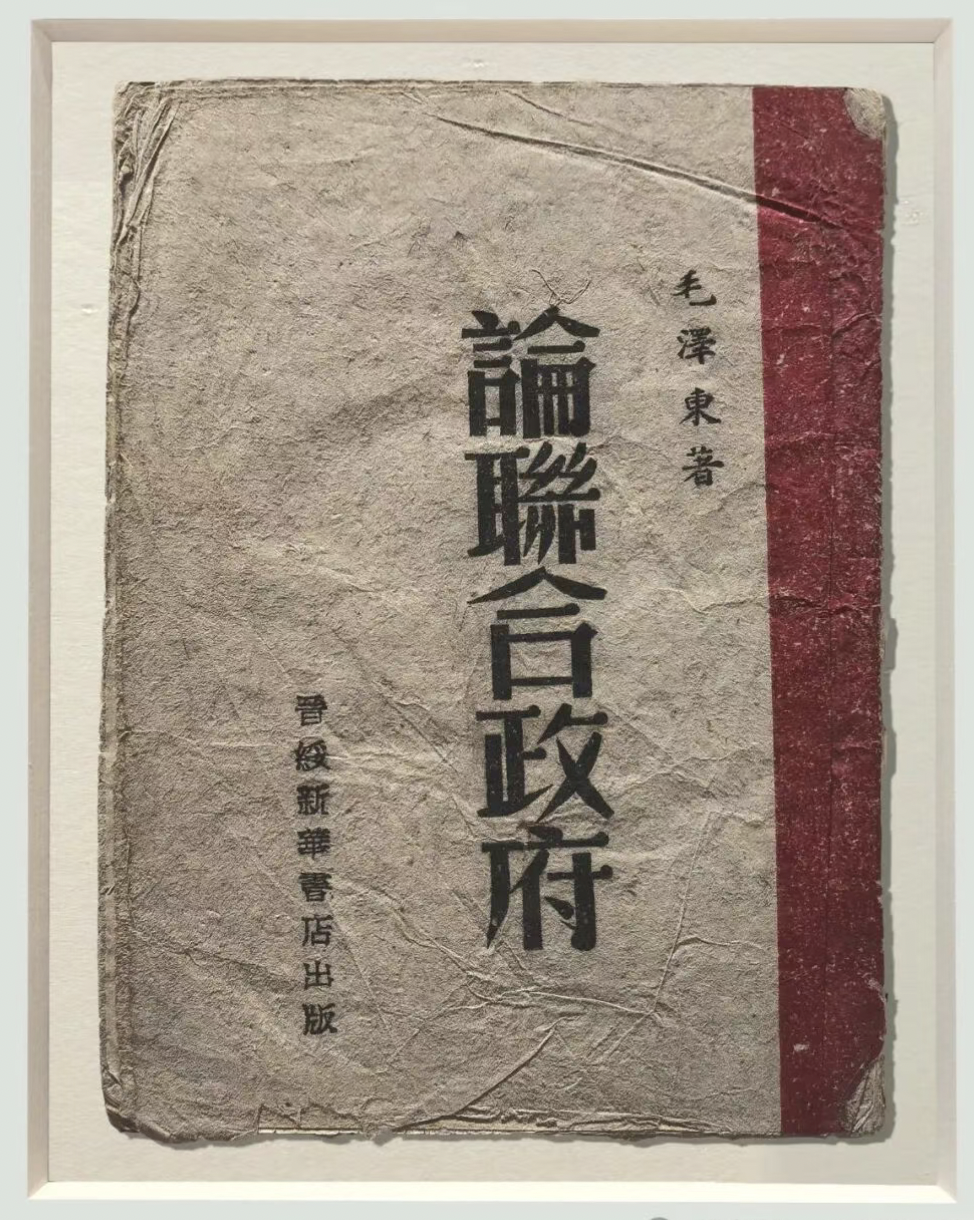 毛澤東著
論聯合政府
晉綏新華書店出版